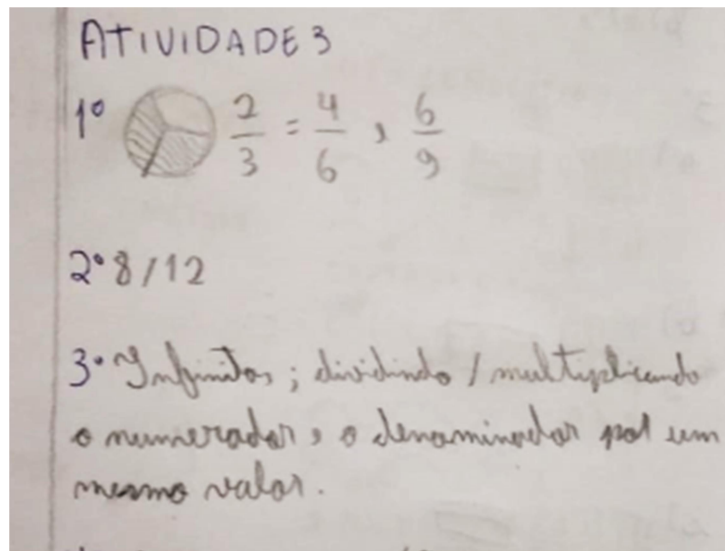 ATIVIDADE 3
1º 2/3 = 4/6, 6/9
2º 8/12
3º Infinitos; dividindo/multiplicando
o numerador e o denominador por um
mesmo valor.